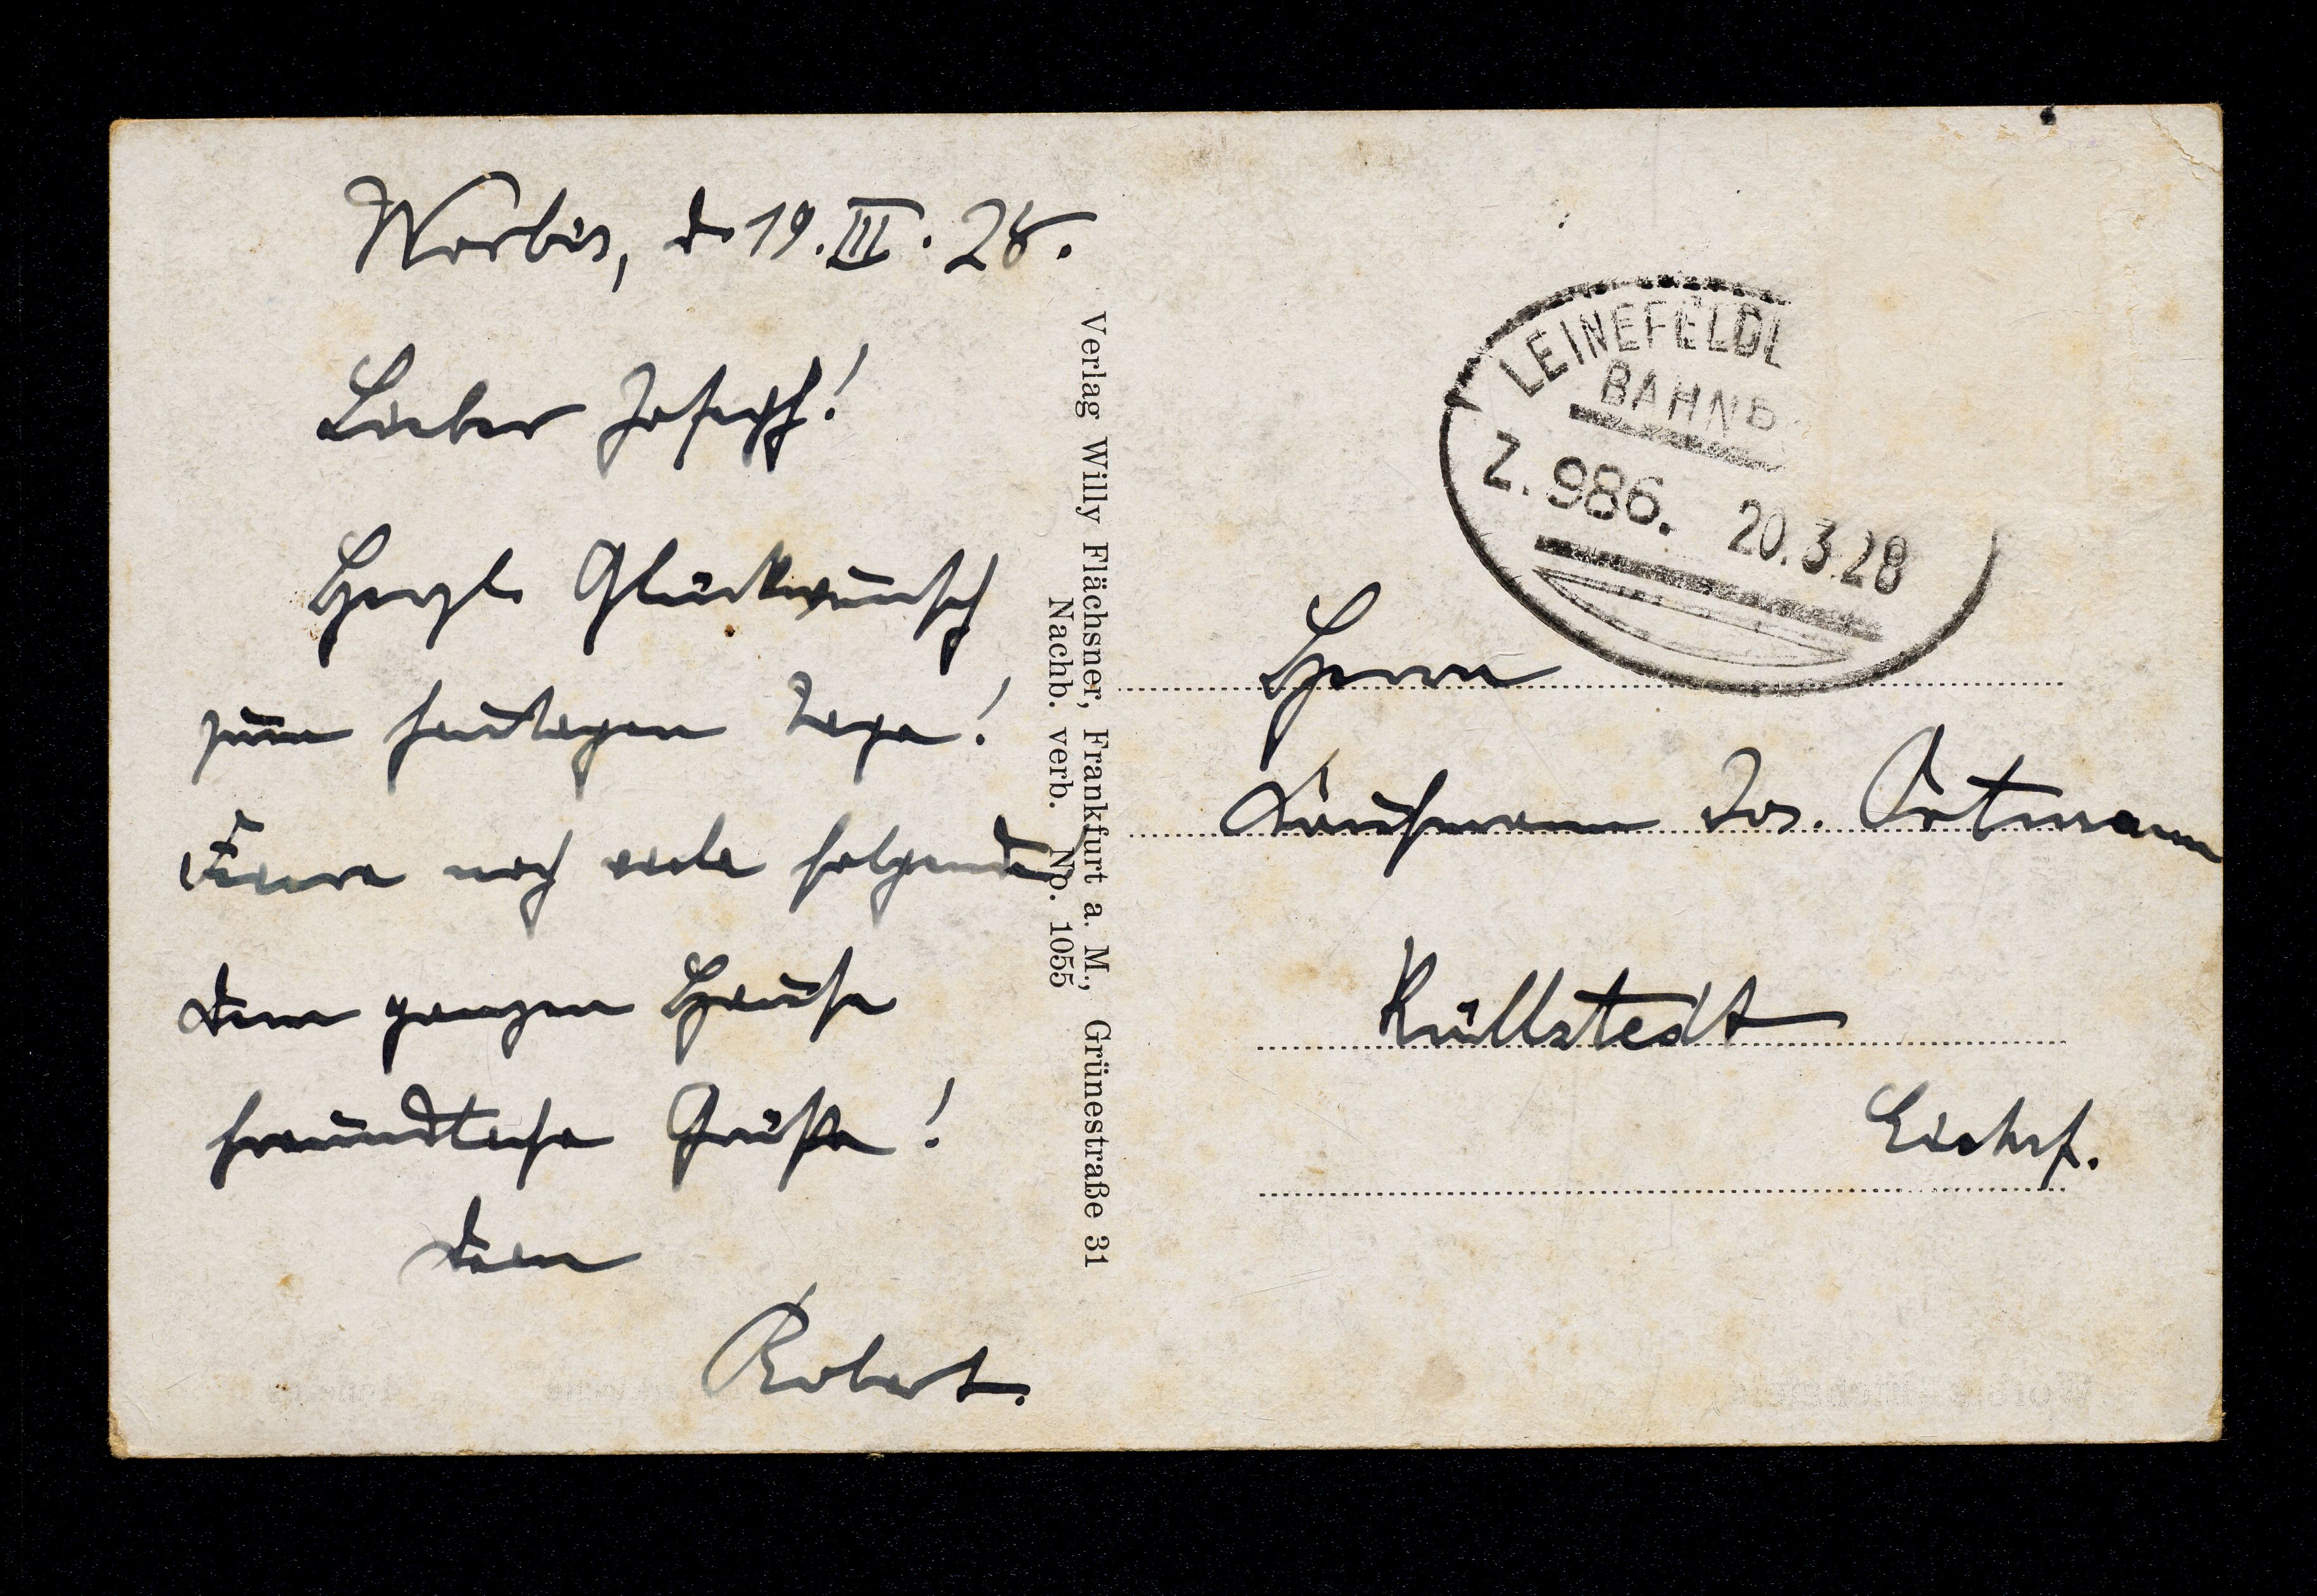 Worbis, d. 19. III. 28.
Lieber Joseph!
Herzl. Glückwunsch
zum heutigen Tage!
Feiere noch viele folgende!
Dem ganzen Hause
freundliche Grüße!
Dein
Robert.
Verlag Willy Flächsner, Frankfurt a. M., Grünestraße 31
Nachb. verb. No. 1055
LEINEFELD
BAHNP
Z. 986. 20.3.28
Herrn
Kaufmann Jos. Ortmann
Küllstedt
Eichsf.